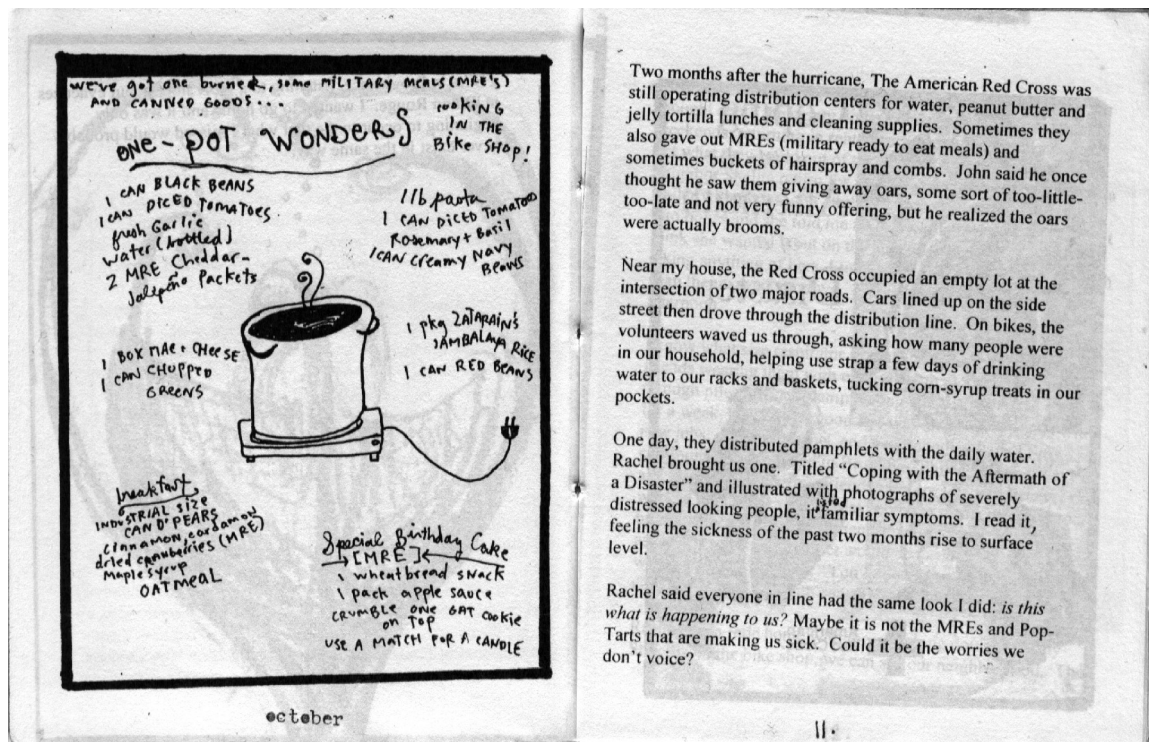 we've got one burner, some MILITARY MEALS (MRE's)
AND CANNED GOODS...
cooking
IN THE
BIKE SHOP!
ONE-POT WONDERS
1 CAN BLACK BEANS
1 CAN DICED TOMATOES
fresh Garlic
water (bottled)
2 MRE Cheddar-
Jalepeño Packets
1 lb pasta
1 CAN DICED TOMATOES
Rosemary + Basil
1 CAN Creamy Navy
Beans
1 BOX MAC + CHEESE
1 CAN CHOPPED
GREENS
1 pkg ZATARAIN'S
JAMBALAYA RICE
1 CAN RED BEANS
breakfast
INDUSTRIAL SIZE
CAN O' PEARS
cinnamon, cardamon
dried cranberries (MRE)
Maple syrup
OATMEAL
Special Birthday Cake
[MRE]
1 wheatbread snack
1 pack apple sauce
CRUMBLE ONE OAT cookie
on TOP
USE A MATCH FOR A CANDLE
october
Two months after the hurricane, The American Red Cross was
still operating distribution centers for water, peanut butter and
jelly tortilla lunches and cleaning supplies. Sometimes they
also gave out MREs (military ready to eat meals) and
sometimes buckets of hairspray and combs. John said he once
thought he saw them giving away oars, some sort of too-little-
too-late and not very funny offering, but he realized the oars
were actually brooms.
Near my house, the Red Cross occupied an empty lot at the
intersection of two major roads. Cars lined up on the side
street then drove through the distribution line. On bikes, the
volunteers waved us through, asking how many people were
in our household, helping use strap a few days of drinking
water to our racks and baskets, tucking corn-syrup treats in our
pockets.
One day, they distributed pamphlets with the daily water.
Rachel brought us one. Titled "Coping with the Aftermath of
a Disaster" and illustrated with photographs of severely
distressed looking people, it listed familiar symptoms. I read it,
feeling the sickness of the past two months rise to surface
level.
Rachel said everyone in line had the same look I did: is this
what is happening to us? Maybe it is not the MREs and Pop-
Tarts that are making us sick. Could it be the worries we
don't voice?
11.